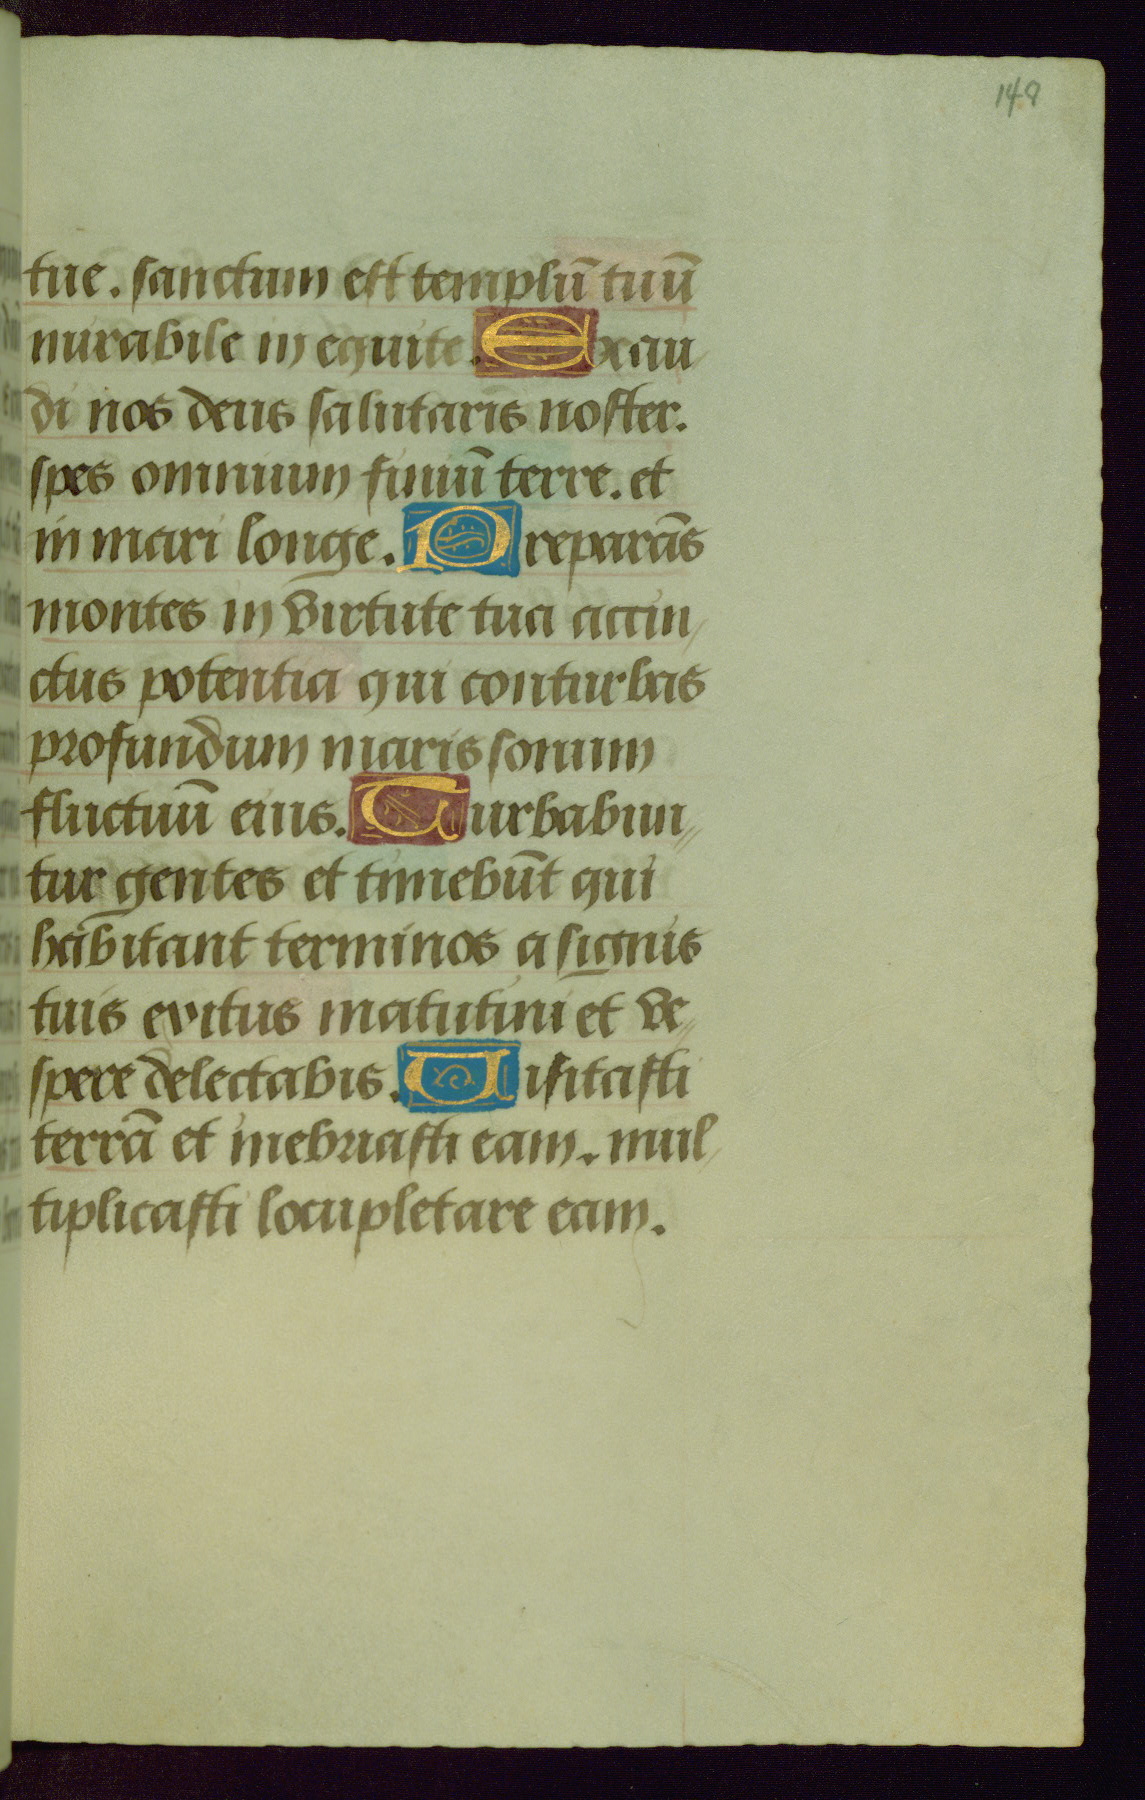 149
tue. sanctum est templū tuū
mirabile in equite. Exau
di nos deus salutaris noster.
spes omnium finiū terre. et
in mari longe. Preparās
montes in virtute tua accin
ctus potentia qui conturbas
profundum maris sonum
fluctuū eius. Turbabun
tur gentes et timebūt qui
habitant terminos a signis
tuis exitus matutini et ve
spere delectabis. Uisitasti
terrā et inebriasti eam. mul
tiplicasti locupletare eam.